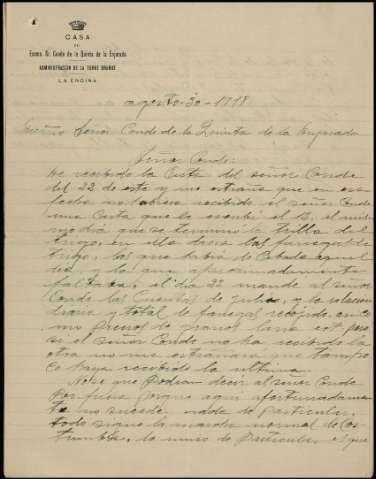 CASA
DEL
Excmo. Sr. Conde de la Quinta de la Enjarada
ADMINISTRACIÓN DE LA TORRE GRANDE
LA ENCINA
agosto-30-1918
Señor Conde de la Quinta de la Enjarada
Señor Conde:
He recibido la Carta del señor Conde
del 22 de este y me estraña que en esa
fecha no hubiera recibido el señor Conde
una Carta que le escribí el 13, el mis
mo dia que se terminó la trilla del
trigo, en ella daba las fanegas de
trigo, las que habia de Cebada aquel
dia y lo que aproximadamente
faltaba, el dia 22 mande al señor
Conde las Cuentas de julio, y la relacion
diaria y total de fanegas recojidas
mo precios de granos lana
si el señor Conde no ha recibido la
otra no me estrañaria que tampo
co haya recibido la ultima.
No se que podian decir al señor Conde
por que aqui afortunadamen
te no sucede nada de particular,
todo sigue la marcha normal de Cos-
tumbre, lo unico de particular es que